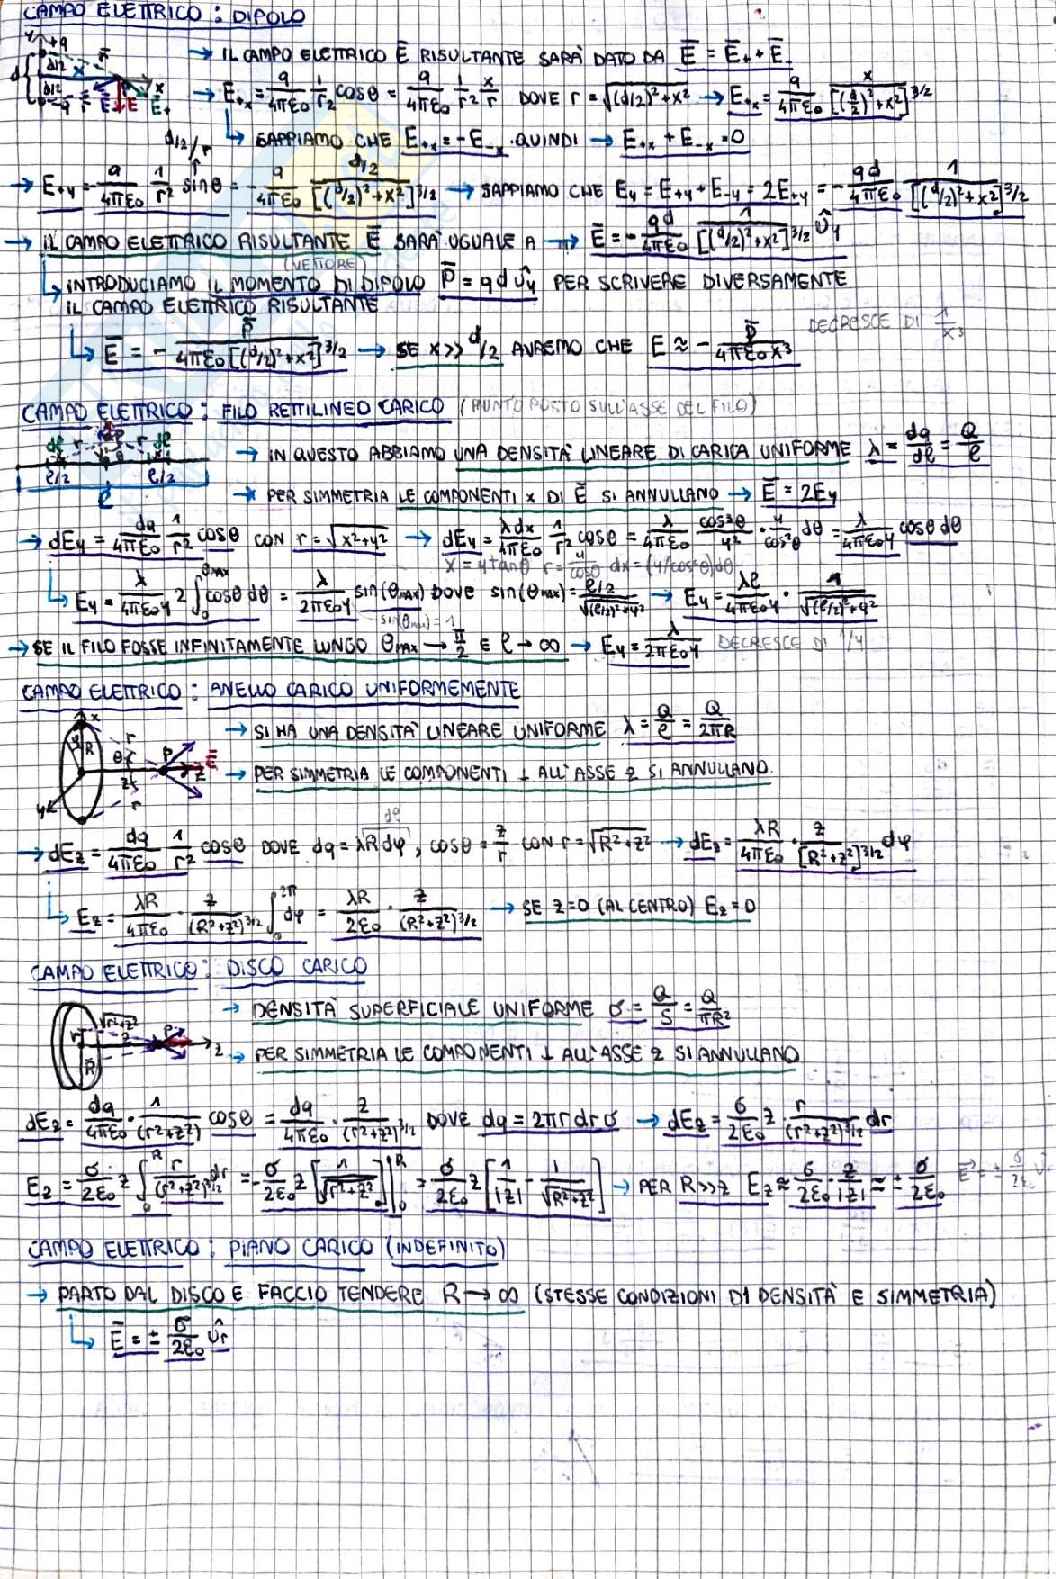 CAMPO ELETTRICO : DIPOLO
→ IL CAMPO ELETTRICO Ē RISULTANTE SARÀ DATO DA Ē = Ē₊ + Ē₋
→ E₊ₓ = q/4πε₀ 1/r² cosθ = q/4πε₀ 1/r² x/r DOVE r = √((d/2)²+x²) → E₊ₓ = q/4πε₀ x/[(d/2)²+x²]^3/2
↳ SAPPIAMO CHE E₊ₓ = -E₋ₓ QUINDI → E₊ₓ + E₋ₓ = 0
d/2/r
→ E₊y = q/4πε₀ 1/r² sinθ = -q/4πε₀ d/2/[(d/2)²+x²]^3/2 → SAPPIAMO CHE Ey = E₊y + E₋y = 2E₊y = -qd/4πε₀ 1/[(d/2)²+x²]^3/2
→ IL CAMPO ELETTRICO RISULTANTE Ē SARÀ UGUALE A → Ē = -qd/4πε₀ 1/[(d/2)²+x²]^3/2 ûy
(VETTORE)
↳ INTRODUCIAMO IL MOMENTO DI DIPOLO P̄ = q d ûy PER SCRIVERE DIVERSAMENTE
IL CAMPO ELETTRICO RISULTANTE
↳ Ē = - P̄/4πε₀[(d/2)²+x²]^3/2 → SE x >> d/2 AVREMO CHE E ≈ - P̄/4πε₀x³ DECRESCE DI 1/x³
CAMPO ELETTRICO : FILO RETTILINEO CARICO (PUNTO POSTO SULL'ASSE DEL FILO)
→ IN QUESTO ABBIAMO UNA DENSITÀ LINEARE DI CARICA UNIFORME λ = dq/dℓ = Q/ℓ
ℓ/2 ℓ/2
ℓ
→ PER SIMMETRIA LE COMPONENTI x DI Ē SI ANNULLANO → Ē = 2Ey
→ dEy = dq/4πε₀ 1/r² cosθ CON r = √x²+y² → dEy = λdx/4πε₀ 1/r² cosθ = λ/4πε₀ cos³θ/y² · y/cos²θ dθ = λ/4πε₀y cosθ dθ
x = y tanθ r = y/cosθ dx = (y/cos²θ)dθ
↳ Ey = λ/4πε₀y 2∫₀^θmax cosθ dθ = λ/2πε₀y sin(θmax) DOVE sin(θmax) = ℓ/2/√(ℓ/2)²+y² → Ey = λℓ/4πε₀y · 1/√(ℓ/2)²+y²
sin(θmax) = 1
→ SE IL FILO FOSSE INFINITAMENTE LUNGO θmax → π/2 E ℓ → ∞ → Ey = λ/2πε₀y DECRESCE DI 1/y
CAMPO ELETTRICO : ANELLO CARICO UNIFORMEMENTE
→ SI HA UNA DENSITÀ LINEARE UNIFORME λ = Q/ℓ = Q/2πR
→ PER SIMMETRIA LE COMPONENTI ⊥ ALL'ASSE z SI ANNULLANO.
dℓ
→ dEz = dq/4πε₀ 1/r² cosθ DOVE dq = λRdφ, cosθ = z/r CON r = √R²+z² → dEz = λR/4πε₀ · z/[R²+z²]^3/2 dφ
↳ Ez = λR/4πε₀ · z/(R²+z²)^3/2 ∫₀^2π dφ = λR/2ε₀ · z/(R²+z²)^3/2 → SE z=0 (AL CENTRO) Ez = 0
CAMPO ELETTRICO : DISCO CARICO
→ DENSITÀ SUPERFICIALE UNIFORME σ = Q/S = Q/πR²
→ PER SIMMETRIA LE COMPONENTI ⊥ ALL'ASSE z SI ANNULLANO
dEz = dq/4πε₀ · 1/(r²+z²) cosθ = dq/4πε₀ · z/(r²+z²)^3/2 DOVE dq = 2πr dr σ → dEz = σ/2ε₀ z · r/(r²+z²)^3/2 dr
Ez = σ/2ε₀ z ∫₀^R r/(r²+z²)^3/2 dr = -σ/2ε₀ z [1/√r²+z²]|₀^R = σ/2ε₀ z [1/|z| - 1/√R²+z²] → PER R>>z Ez ≈ σ/2ε₀ · z/|z| ≈ ± σ/2ε₀
CAMPO ELETTRICO : PIANO CARICO (INDEFINITO)
→ PARTO DAL DISCO E FACCIO TENDERE R → ∞ (STESSE CONDIZIONI DI DENSITÀ E SIMMETRIA)
↳ Ē = ± σ/2ε₀ ûr